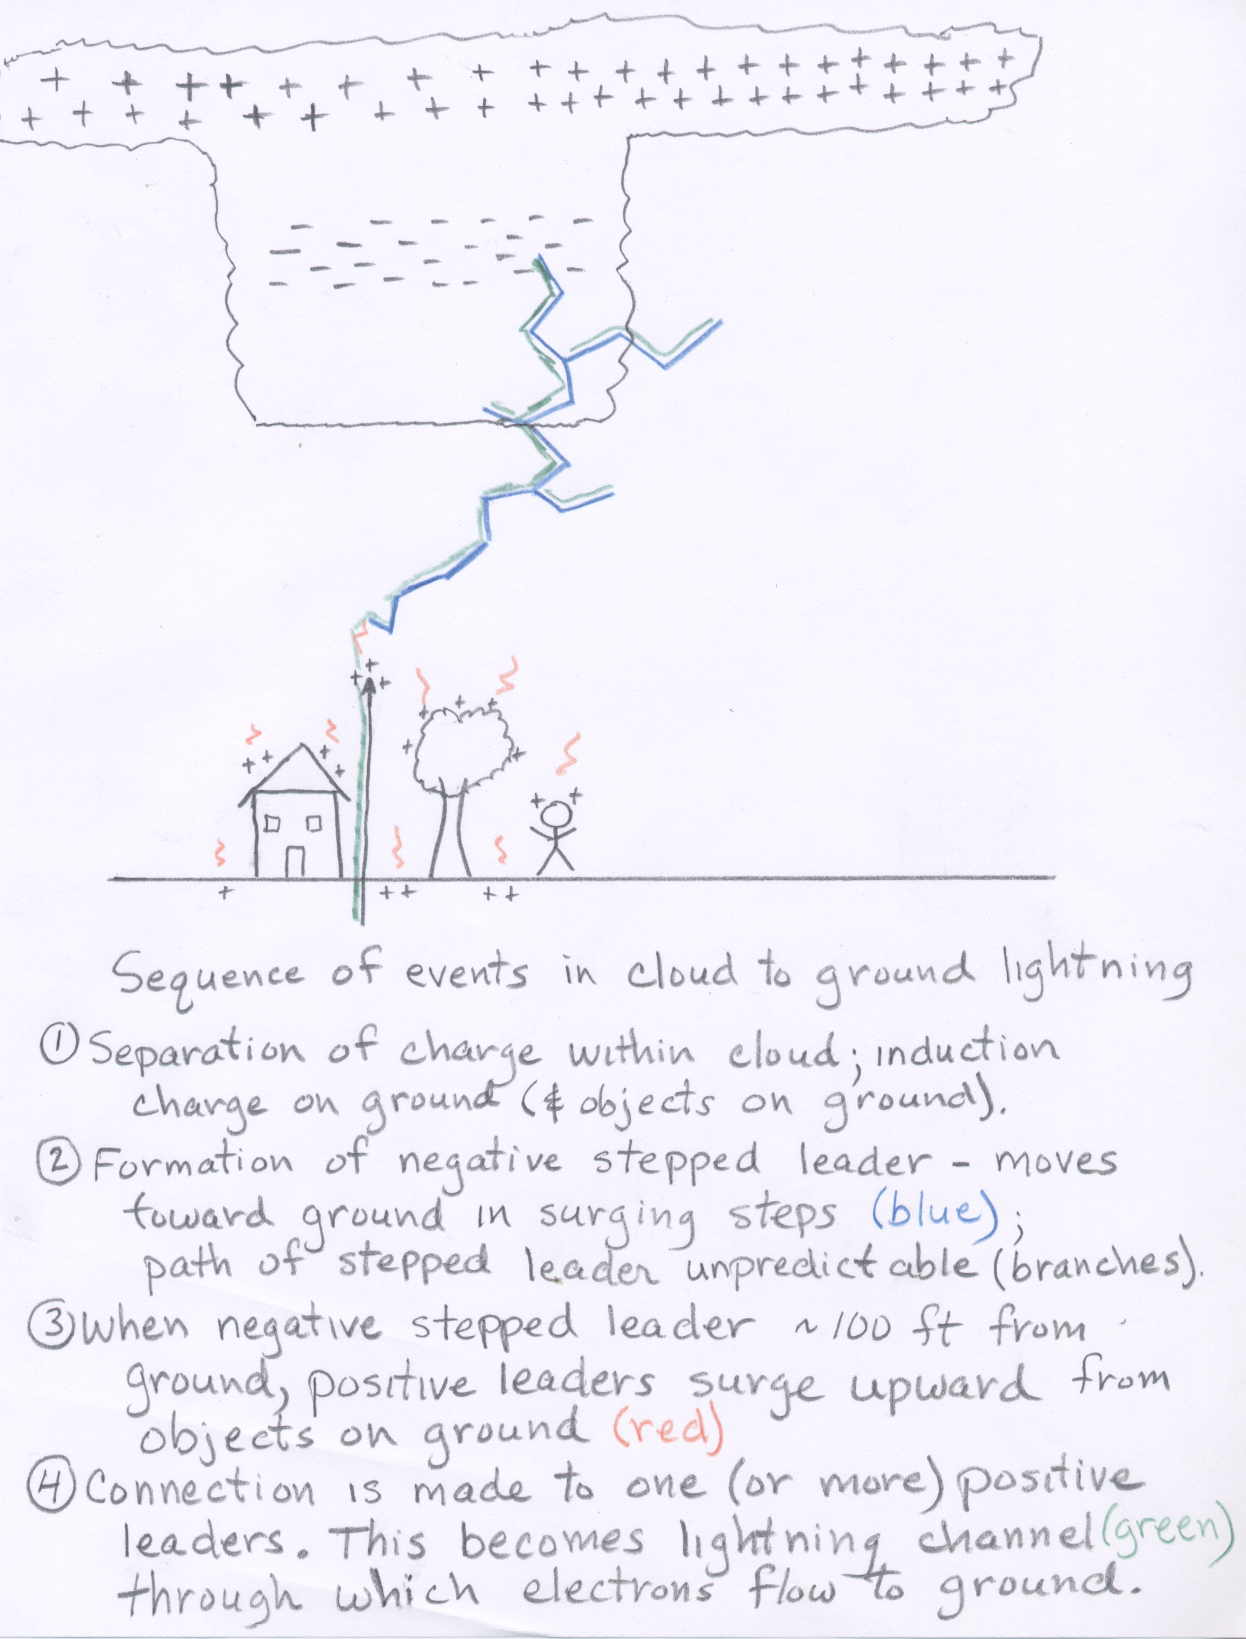 Sequence of events in cloud to ground lightning
① Separation of charge within cloud; induction
charge on ground (& objects on ground).
② Formation of negative stepped leader - moves
toward ground in surging steps (blue);
path of stepped leader unpredictable (branches).
③ When negative stepped leader ~100 ft from
ground, positive leaders surge upward from
objects on ground (red)
④ Connection is made to one (or more) positive
leaders. This becomes lightning channel (green)
through which electrons flow to ground.